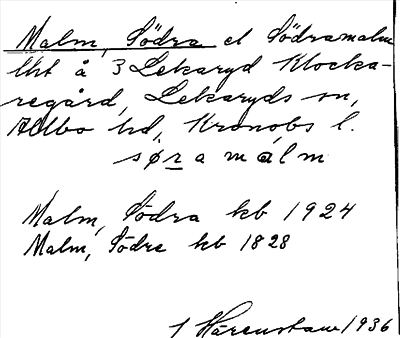 Malm, Södra el Södramalm
lht å 3 Lekaryd Klocka-
regård, Lekaryds sn,
Allbo hd, Kronobs l.
sø̱r a málm
Malm, Södra kb 1924
Malm, Södra kb 1828
1936